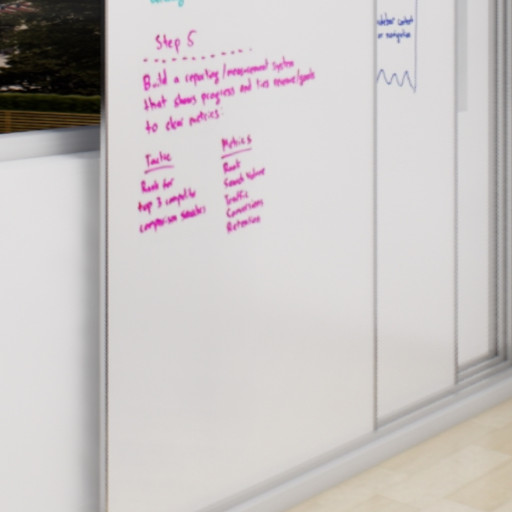 Step 5
Build a reporting/measurement system
that shows progress and ties revenue/goals
to clear metrics:
Tactic
Rank for
top 3 competitor
comparison searches
Metrics
Rank
Search Volume
Traffic
Conversions
Retention
sidebar content
or navigation